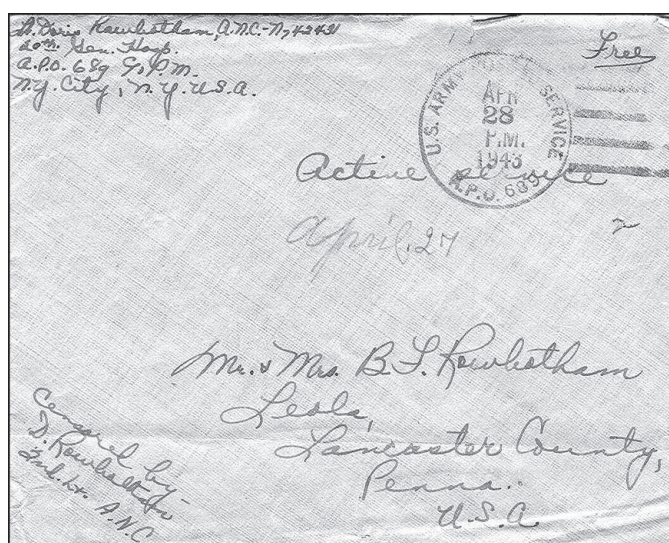 Lt. Doris Rowbotham, A.N.C.-N742421
20th. Gen. Hosp.
A.P.O. 689 % P.M.
N.Y. City, N.Y. U.S.A.
Free
U.S. ARMY POSTAL SERVICE
APR
28
P.M.
1943
A.P.O. 689
Active service
April 27
2
Mr. & Mrs. B. L. Rowbotham
Leola,
Lancaster County,
Penna.
U.S.A
Censored by-
D. Rowbotham
2nd. Lt. A.N.C